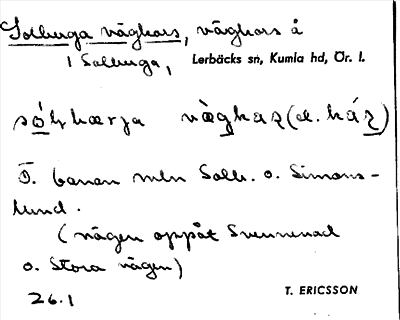 Solberga vägkors, vägkors å
i Solberga, Lerbäcks sn, Kumla hd, Ör. l.
vägkaʀ (el. káʀ)
banan mln Solb. o. Simons-
lund.
(vägen oppåt Svennevad
o. Stora vägen)
26.1 T. ERICSSON